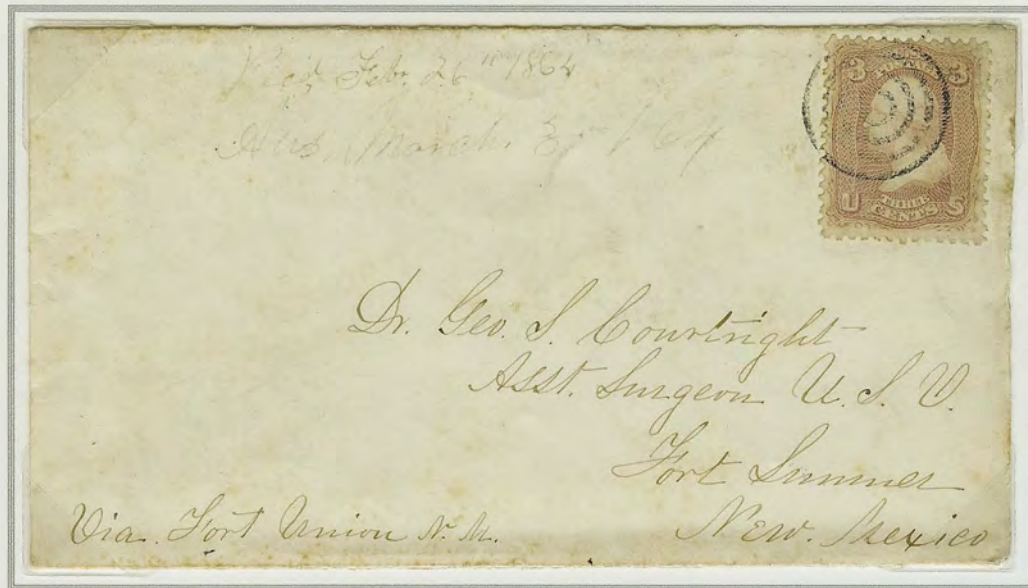 Rec'd Febr. 26th 1864
Ans. March. 3rd 64
3 3
U THREE S
CENTS
Dr. Geo. S. Courtright
Asst. Surgeon U. S. V.
Fort Sumner
New. Mexico
Via. Fort Union N. M.